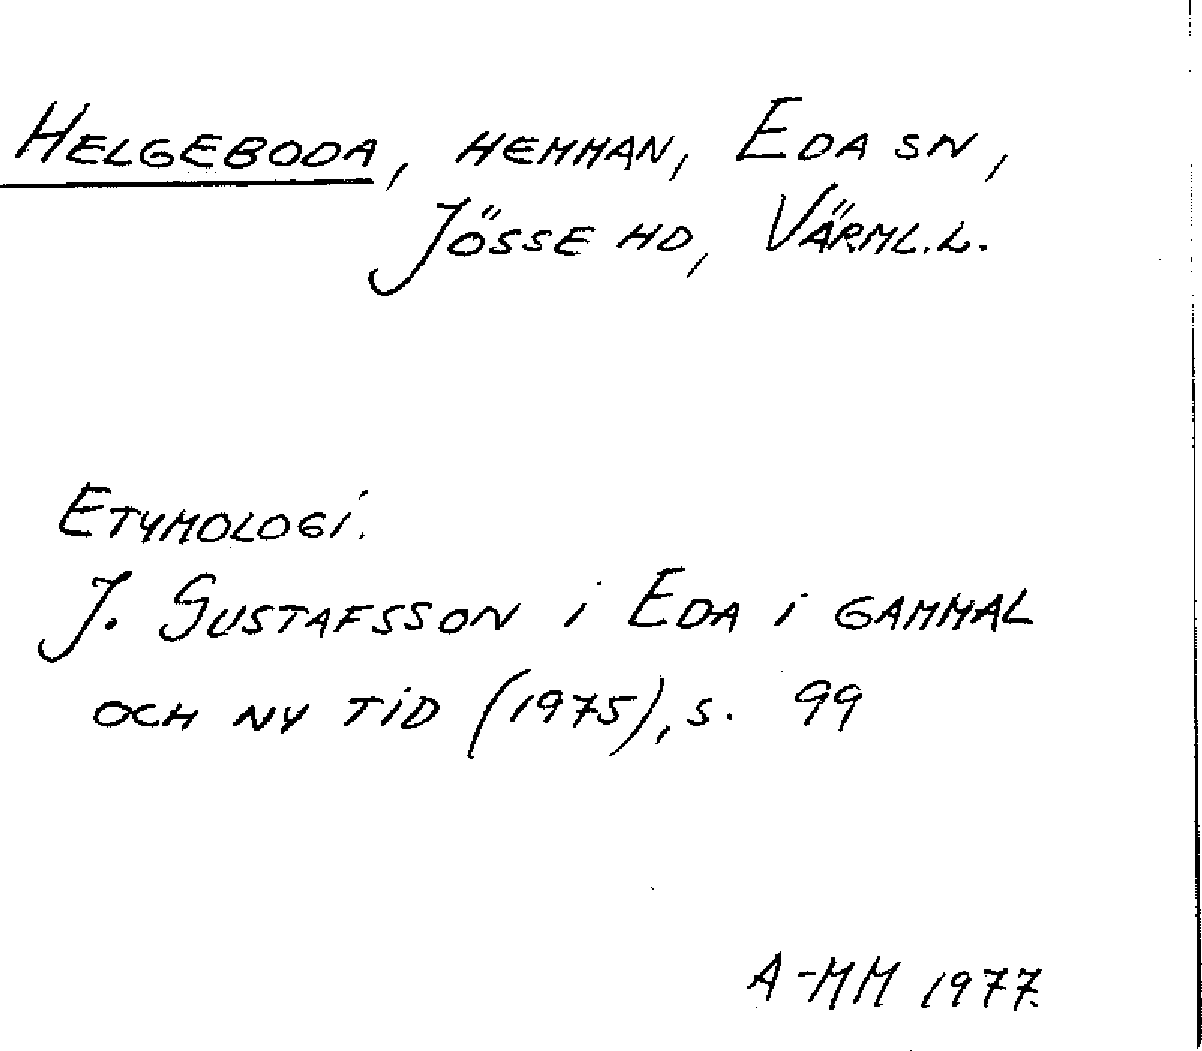 HELGEBODA, HEMMAN, EDA SN,
JÖSSE HD, VÄRML.L.
ETYMOLOGI.
J. GUSTAFSSON i EDA i GAMMAL
OCH NY TID (1975), S. 99
A-MM 1977.